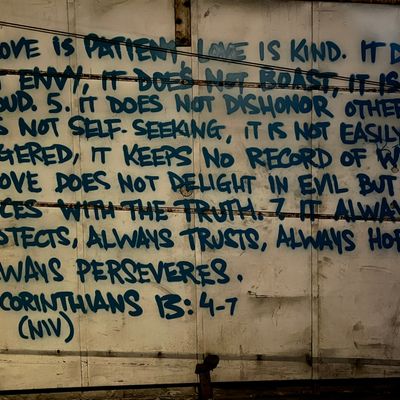 OVE IS PATIENT, LOVE IS KIND. IT D
ENVY, IT DOES NOT BOAST, IT IS
OUD. 5. IT DOES NOT DISHONOR OTHE
S NOT SELF-SEEKING, IT IS NOT EASILY
GERED, IT KEEPS NO RECORD OF W
OVE DOES NOT DELIGHT IN EVIL BUT
ICES WITH THE TRUTH. 7. IT ALWA
OTECTS, ALWAYS TRUSTS, ALWAYS HOP
WAYS PERSEVERES.
CORINTHIANS 13:4-7
(NIV)